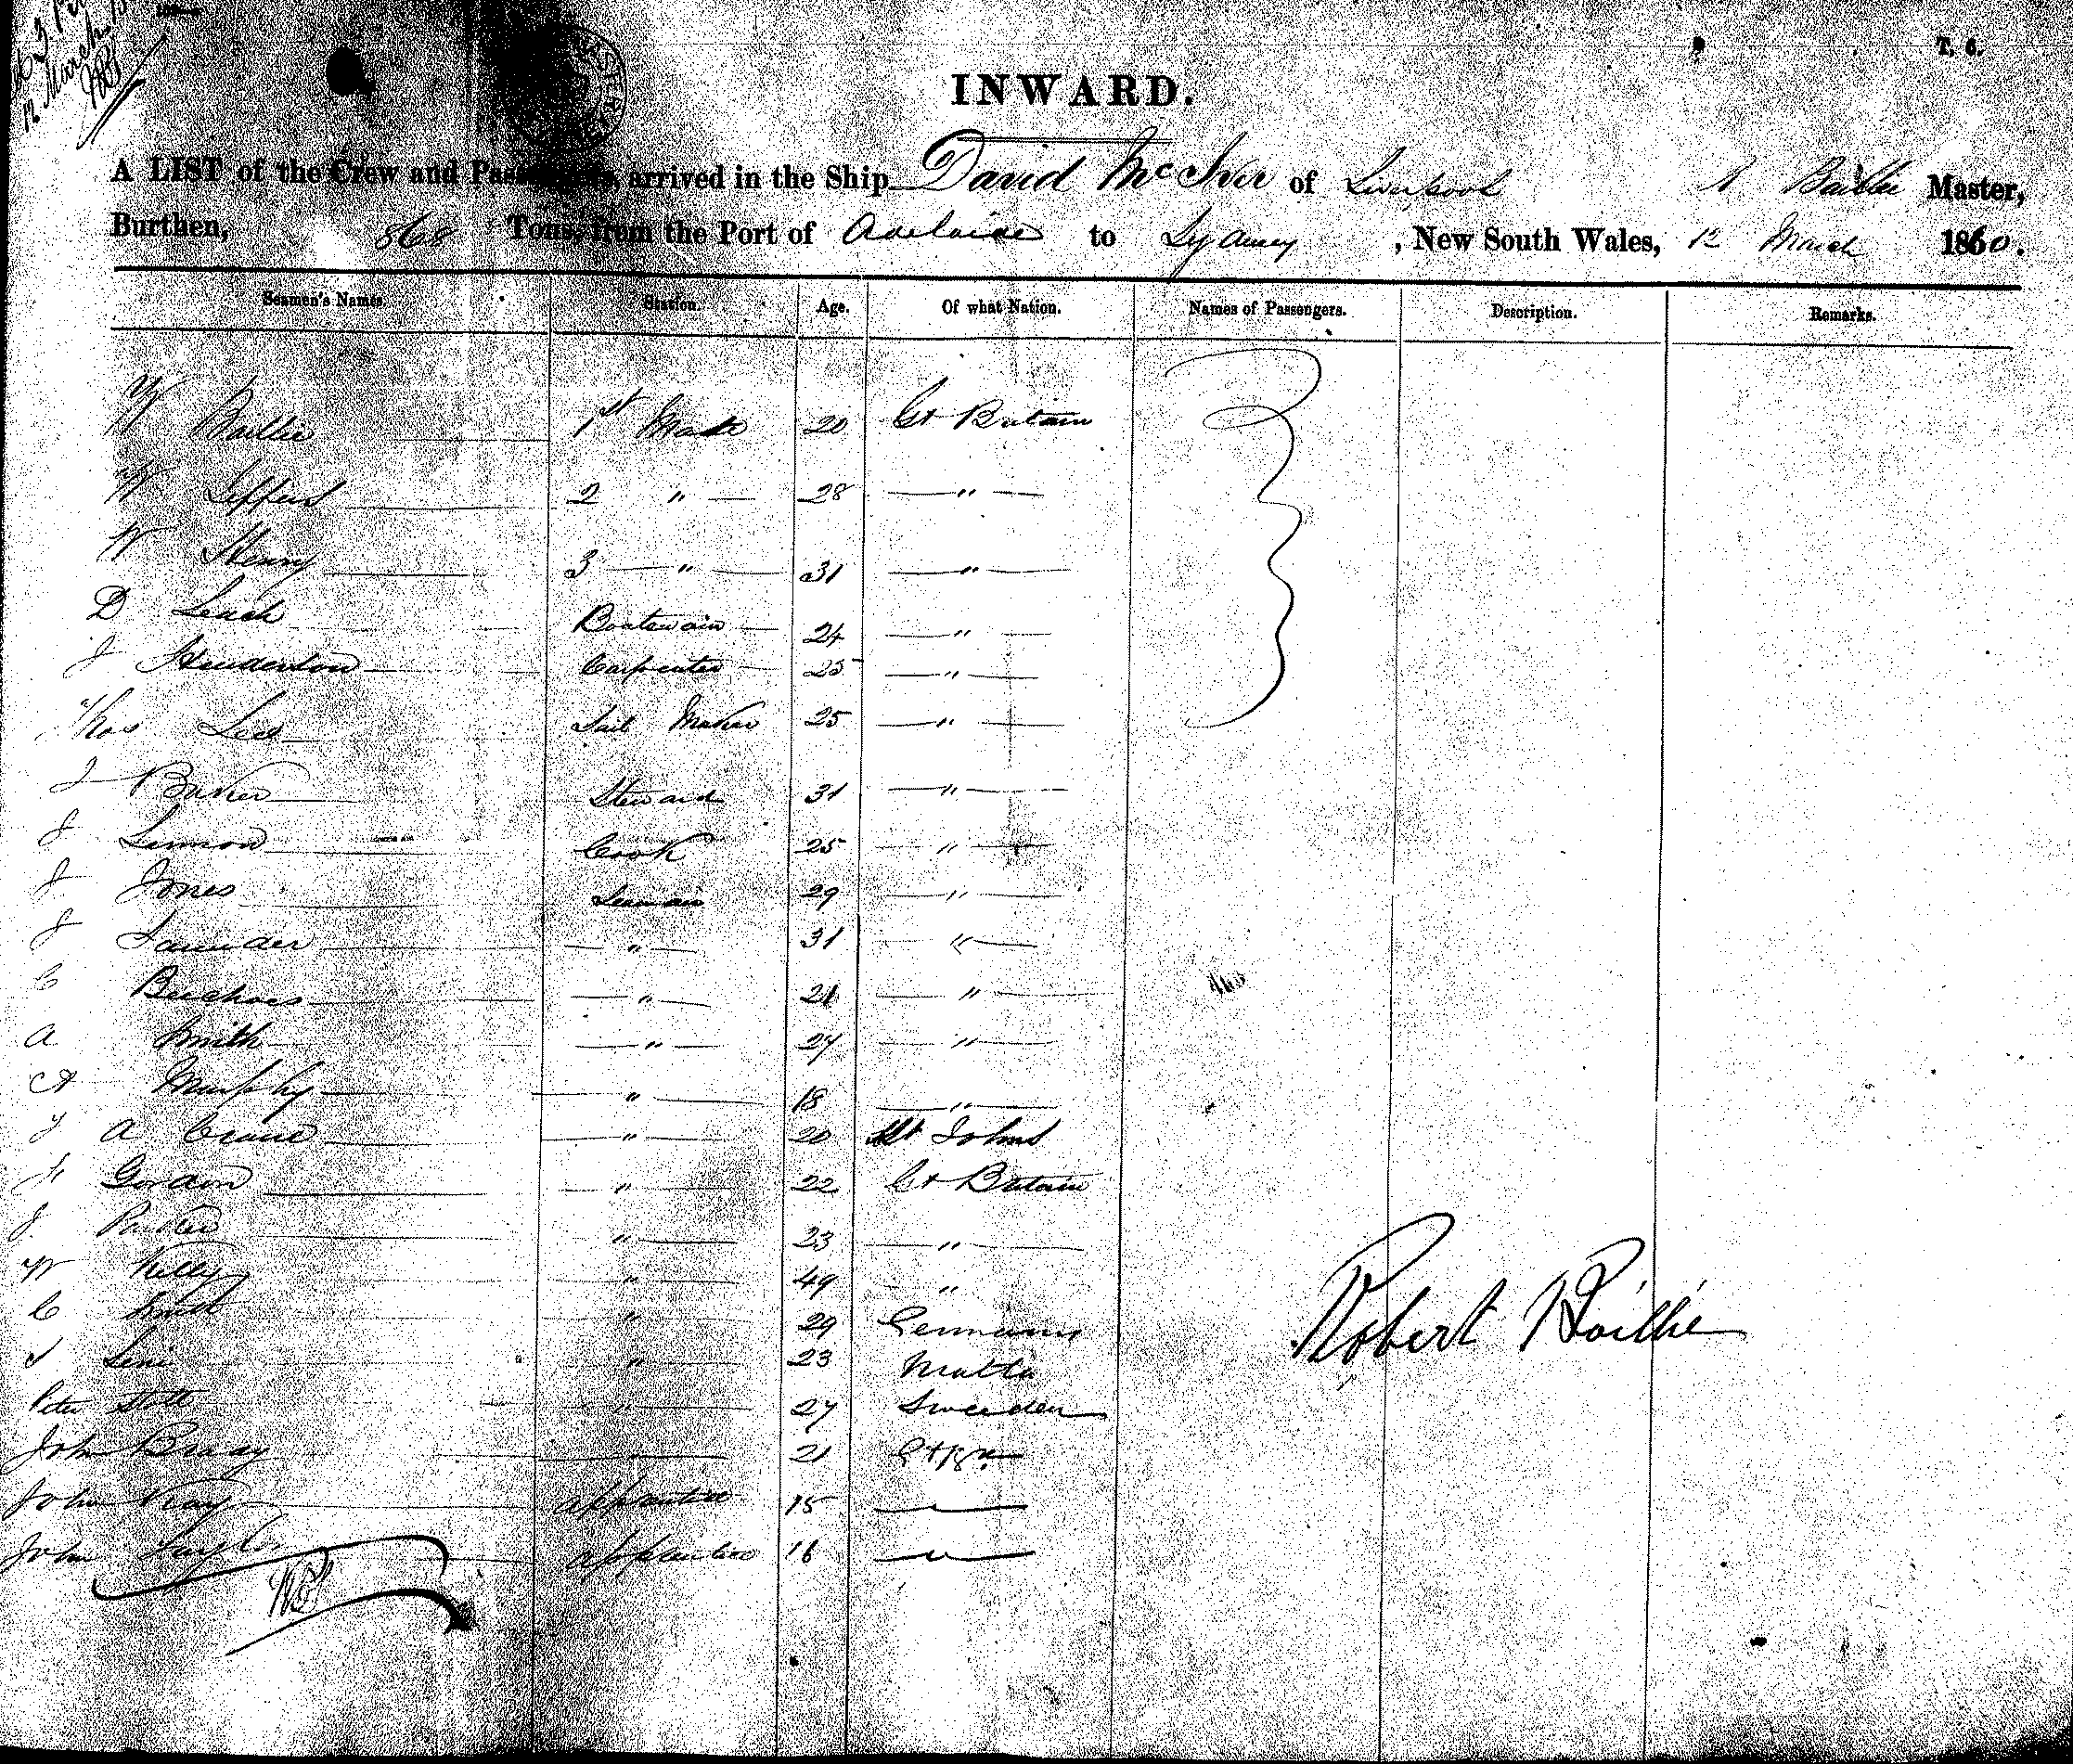 12 March
T. 6.
INWARD.
A LIST of the Crew and Passengers arrived in the Ship David McIver of Liverpool R Baillie Master,
Burthen, 868 Tons, from the Port of Adelaide to Sydney, New South Wales, 12 March 1860.
Seamen's Names. Station. Age. Of what Nation. Names of Passengers. Description. Remarks.
W Baillie 1st Mate 20 Gt Britain
W 2 " 28 "
W Henry 3 " 31 "
D Leach Boatswain 24 "
J Henderson Carpenter 25 "
Thos Lee Sail Maker 25 "
J Baker Steward 31 "
J Lennon Cook 25 "
J Jones Seaman 29 "
J Saunder " 31 "
C " 21 "
A Smith " 27 "
A Murphy " 18 "
J A Crane " 20 St Johns
Gordon " 22 Gt Britain
J. Parker " 23 "
W Kelly " 49 "
C " 29 Germany
" 23 Malta
Peter Stott " 27 Sweeden
John Bray 21 Gt Bn
John Kay apprentice 15 "
John Taylor apprentice 16 "
Robert Baillie